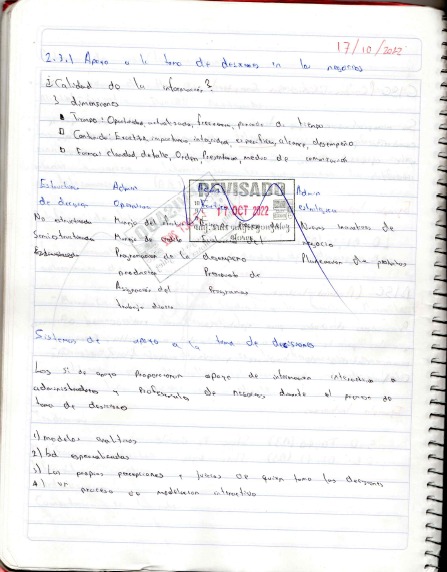 17/10/2022
2.3.1 Apoyo a la toma de decisiones en los negocios
¿Calidad de la información?
3 dimensiones
Tiempo: Oportunidad, actualizada, frecuencia, periodo de tiempo
Contenido: Exactitud, importancia, integridad, especifica, alcance, desempeño
Forma: claridad, detalle, Orden, Presentación, medios de comunicación
Estructura Admin Admin
de decisión Operativa estratégica
REVISADO
17 OCT 2022
No estructurada Manejo del Nuevas
Semiestructurada Manejo de negocio
Estructurada Programación de la desempeño Planeación de productos
producción Presupuesto de
Asignación del Programas
trabajo diario
Sistemas de apoyo a la toma de decisiones
Los SI de apoyo proporcionan apoyo de información interactivo a
administradores y Profesionales de negocios durante el proceso de
toma de decisiones
1) modelos analíticos
2) bd especializadas
3) Las propias percepciones y juicios de quien toma las decisiones
4) un proceso de modelación interactivo